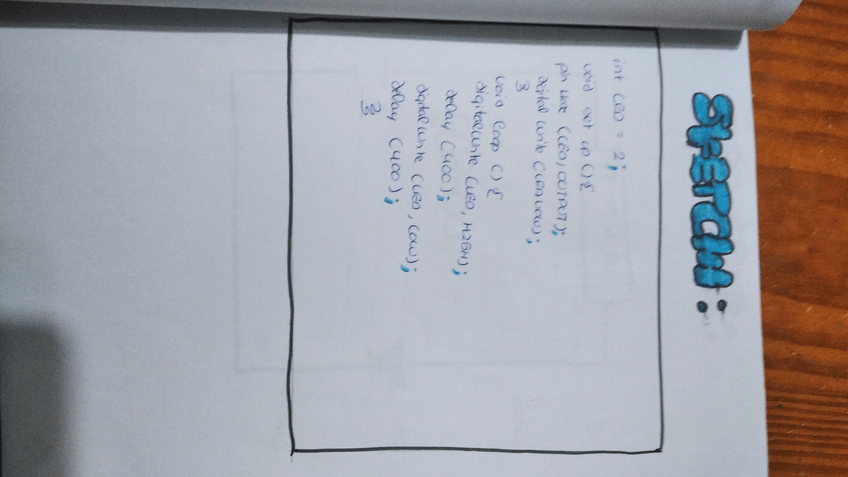 SKETCH:
int LED = 2;
void set up () {
pin Mode (LED, OUTPUT);
digital write (LED, LOW);
}
void loop () {
digitalWrite (LED, HIGH);
delay (400);
digital Write (LED, LOW);
delay (400);
}